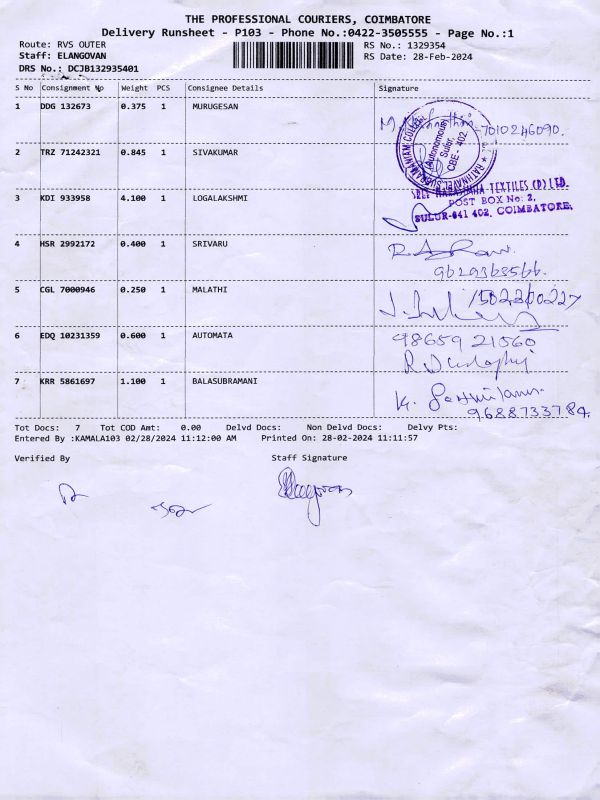 THE PROFESSIONAL COURIERS, COIMBATORE
Delivery Runsheet - P103 - Phone No.:0422-3505555 - Page No.:1
Route: RVS OUTER RS No.: 1329354
Staff: ELANGOVAN RS Date: 28-Feb-2024
DRS No.: DCJB132935401
S No Consignment No Weight PCS Consignee Details Signature
1 DDG 132673 0.375 1 MURUGESAN
7010246090.
(Autonomous)
Sulur,
CBE - 402
2 TRZ 71242321 0.845 1 SIVAKUMAR
3 KDI 933958 4.100 1 LOGALAKSHMI
TEXTILES (P) LTD.
POST BOX No: 2,
SULUR-641 402. COIMBATORE.
4 HSR 2992172 0.400 1 SRIVARU
5 CGL 7000946 0.250 1 MALATHI
6 EDQ 10231359 0.600 1 AUTOMATA
98659 21560
7 KRR 5861697 1.100 1 BALASUBRAMANI
9688733784.
Tot Docs: 7 Tot COD Amt: 0.00 Delvd Docs: Non Delvd Docs: Delvy Pts:
Entered By :KAMALA103 02/28/2024 11:12:00 AM Printed On: 28-02-2024 11:11:57
Verified By Staff Signature